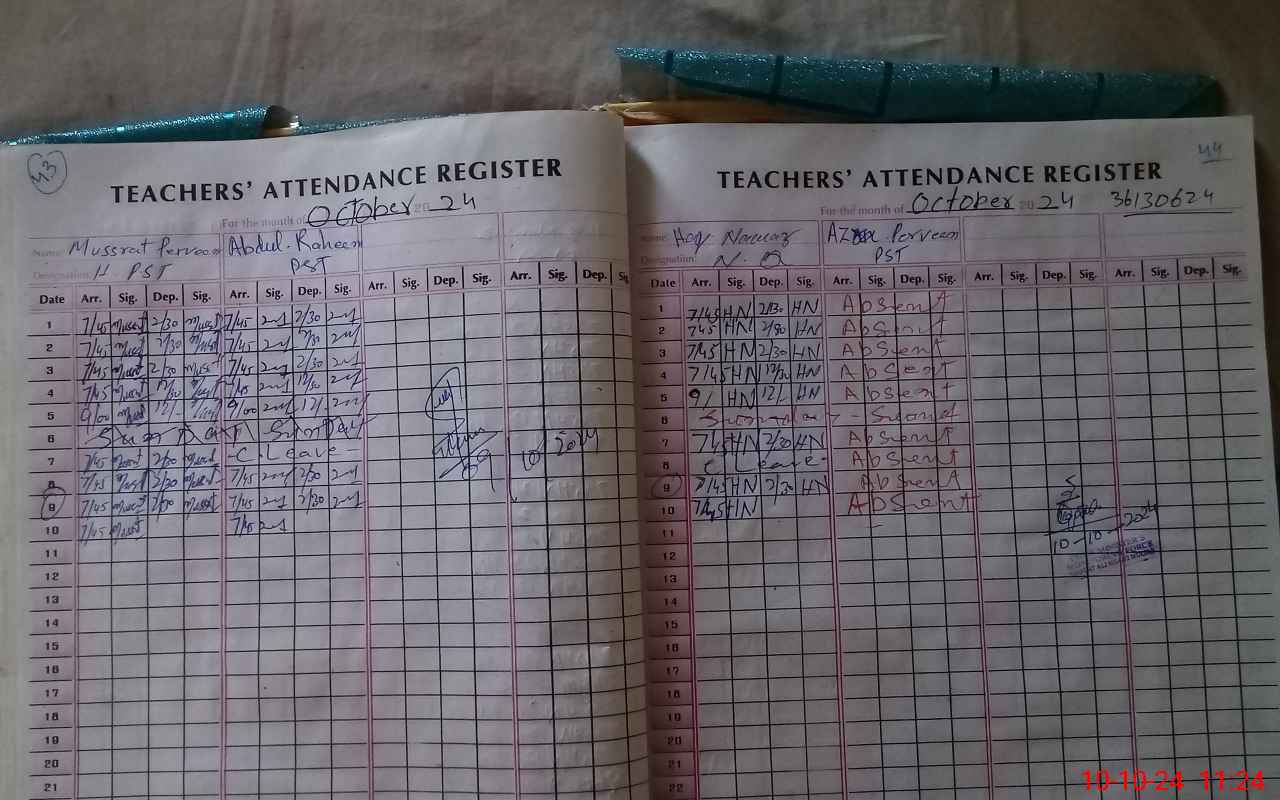 43
TEACHERS' ATTENDANCE REGISTER
For the month of October 20 24
Name: Mussrat Perveen Abdul Raheem
Designation: H. PST PST
Date Arr. Sig. Dep. Sig. Arr. Sig. Dep. Sig. Arr. Sig. Dep. Sig. Arr. Sig. Dep. Sig.
1 7/45 Must 2/30 Must 7/45 2/30
2 7/45 Must 2/30 Must 7/45 2/30
3 7/45 Must 2/30 Must 7/45 2/30
4 7/45 Must 12/30 Must 7/45 12/30
5 9/00 Must 12/- 9/00 12/-
6 Sunday Sunday
7 7/45 Must 2/30 Must - C. Leave -
8 7/45 Must 2/30 Must 7/45 2/30
9 7/45 Must 2/30 Must 7/45 2/30
10 7/45 Must 7/45
11
12
13
14
15
16
17
18
19
20
21
09 10 2024
44
TEACHERS' ATTENDANCE REGISTER
For the month of October 20 24 36130624
Name: Haq Nawaz Azra Perveen
Designation: N. Q PST
Date Arr. Sig. Dep. Sig. Arr. Sig. Dep. Sig. Arr. Sig. Dep. Sig. Arr. Sig. Dep. Sig.
1 7/45 HN 2/30 HN Absent
2 7/45 HN 2/30 HN Absent
3 7/45 HN 2/30 HN Absent
4 7/45 HN 12/30 HN Absent
5 9/ HN 12/- HN Absent
6
7 7/45 HN 2/30 HN Absent
8 C Leave - Absent
9 7/45 HN 2/30 HN Absent
10 7/45 HN Absent
11
12
13
14
15
16
17
18
19
20
22
10-10-2024
10-10-24 11:24